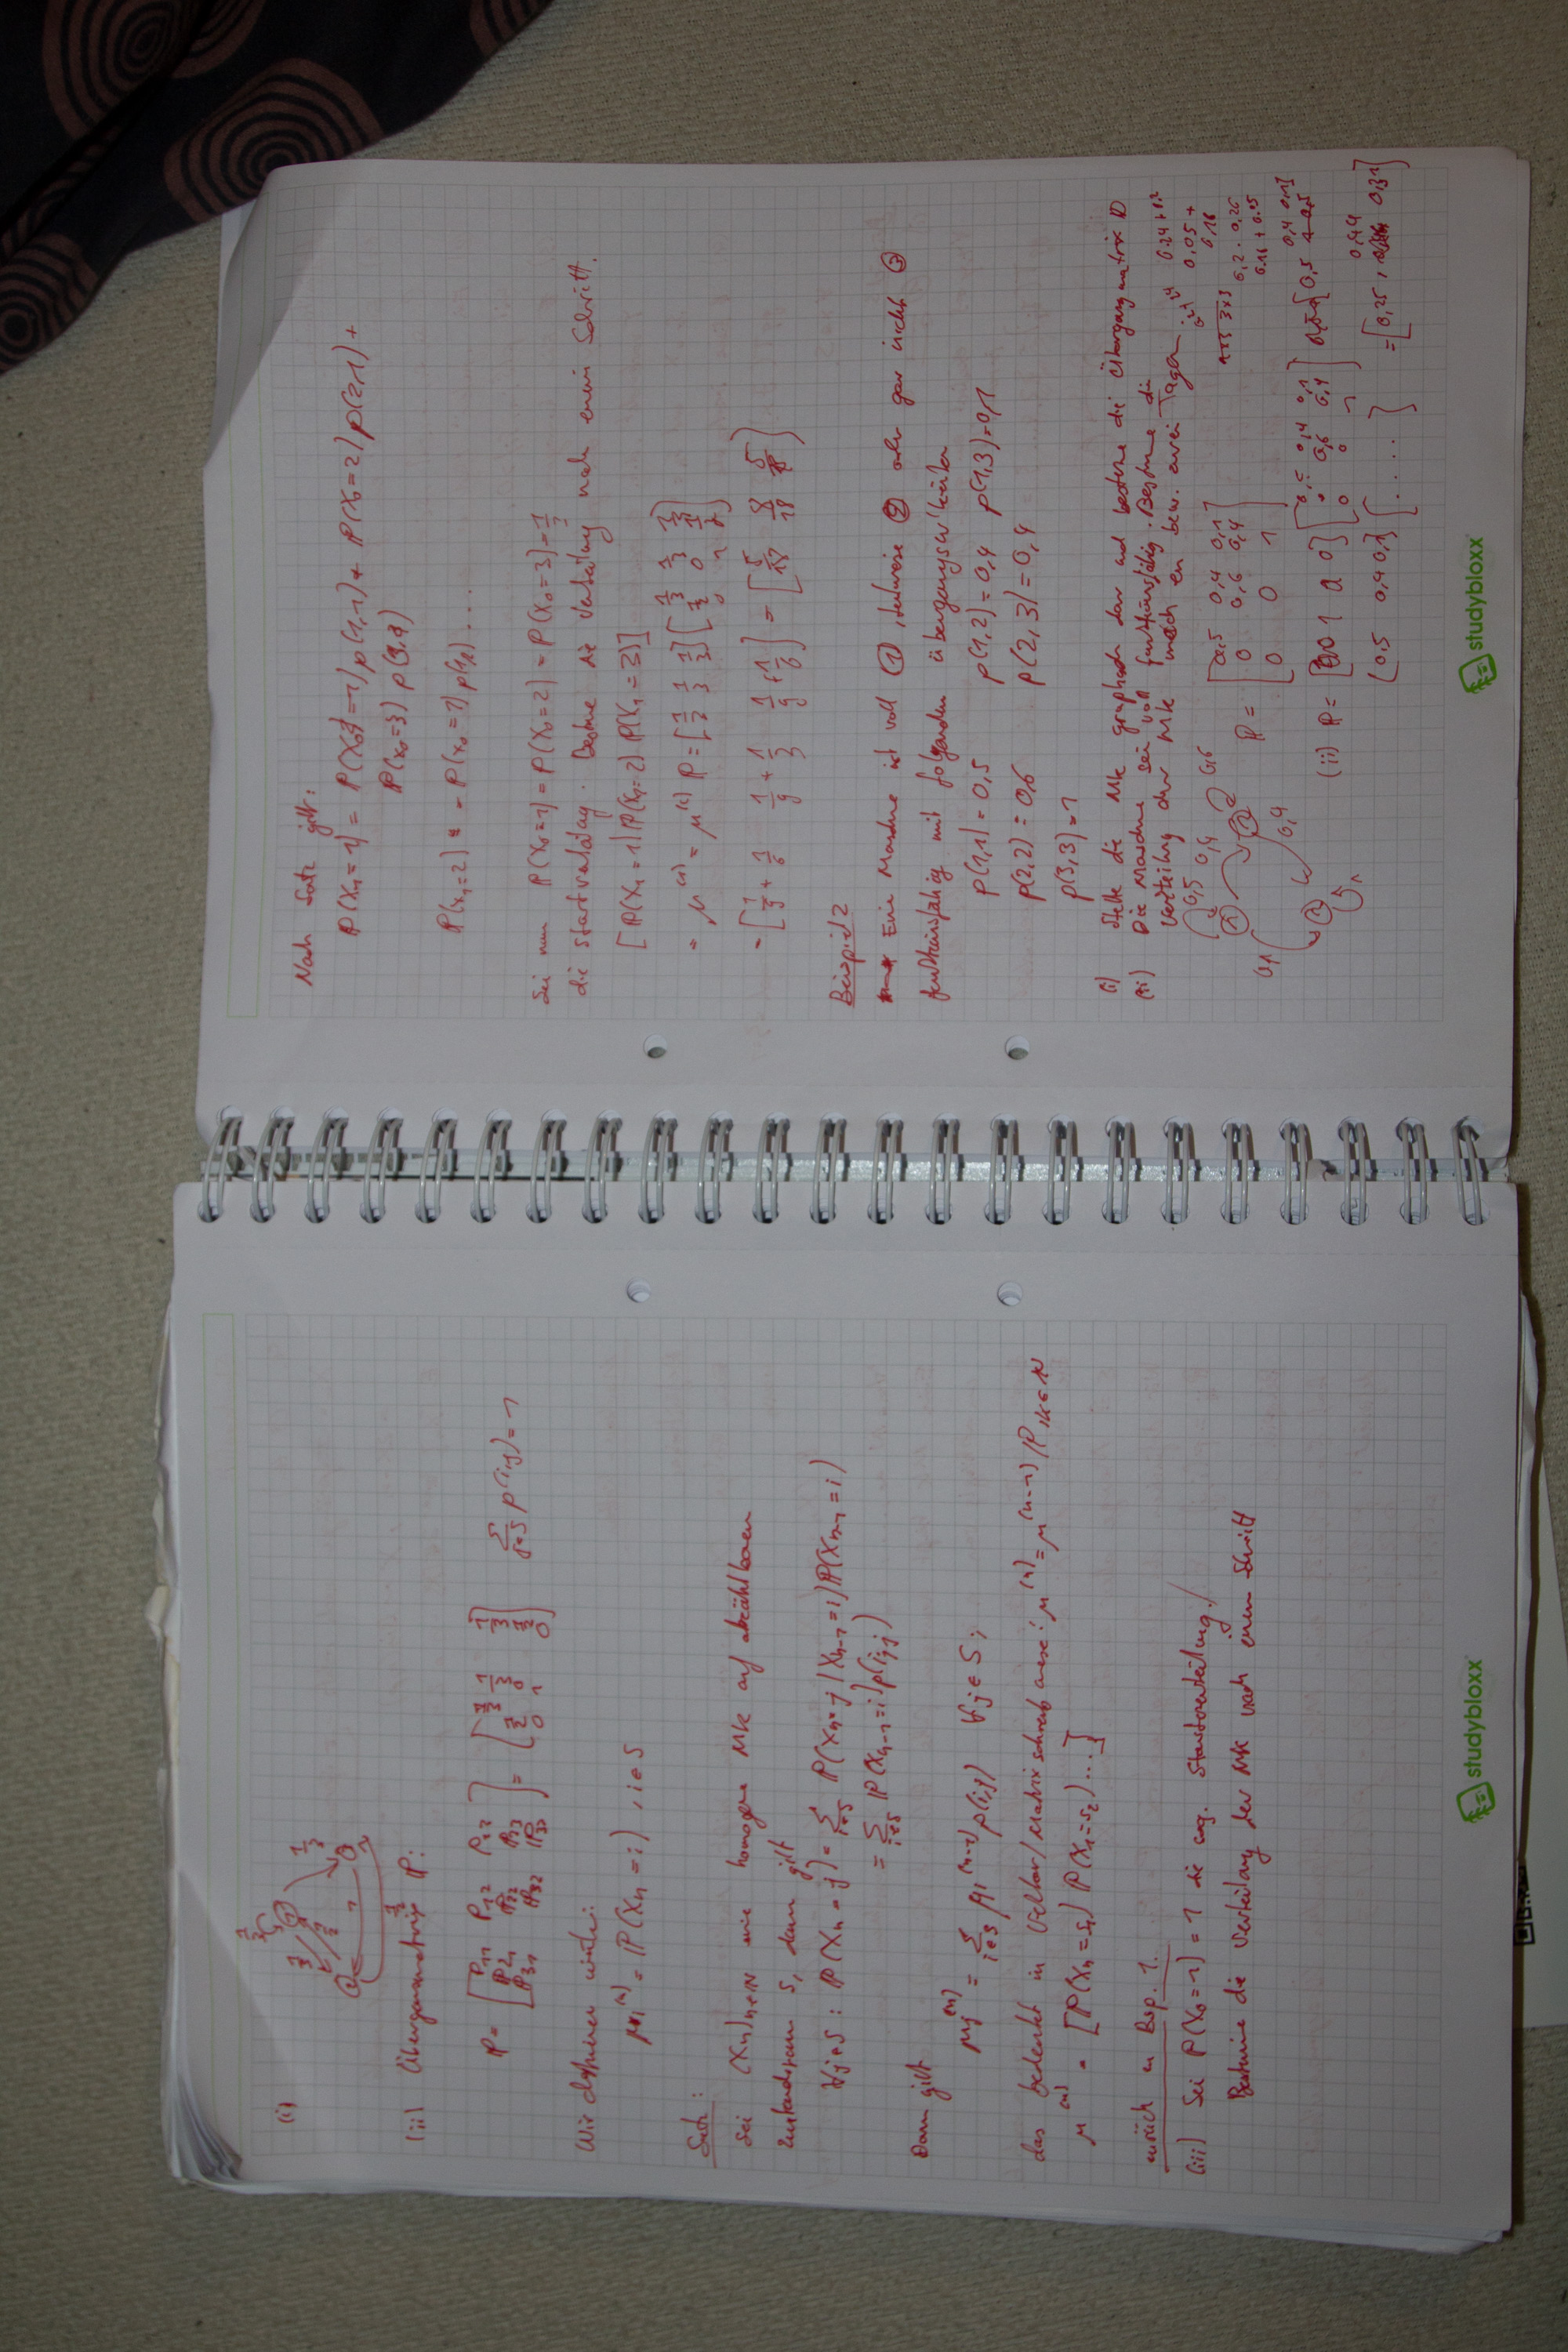 (i)
(ii) Übergansmatrix P:
P = [ P11 P12 P13
P21 P22 P23
P31 P32 P33 ] = [ 1/3 1/3 1/3
1/2 0 1/2
0 1 0 ] ∑ j∈S p(i,j) = 1
Wir definieren weiter:
μi^(n) = P(Xn = i), i∈S
Satz:
Sei (Xn)n∈N eine homogene MK auf abzählbaren
Zustandsraum S, dann gilt
∀j∈S: P(Xn = j) = ∑ i∈S P(Xn = j | Xn-1 = i) P(Xn-1 = i)
= ∑ i∈S P(Xn-1 = i) p(i,j)
Dann gilt
μj^(n) = ∑ i∈S μi^(n-1) p(i,j) ∀j∈S;
das bedeutet in Vektor/Matrixschreibweise: μ^(n) = μ^(n-1) P, n∈N
μ^(n) = [P(Xn = s1) P(Xn = s2) ....]
zurück zu Bsp. 1.
(iii) Sei P(X0 = 1) = 1 die ang. Startverteilung!
Bestimme die Verteilung der MK nach einem Schritt
studybloxx
Nach Satz gilt:
P(X1 = 1) = P(X0 = 1) p(1,1) + P(X0 = 2) p(2,1) +
P(X0 = 3) p(3,1)
P(X1 = 2) = P(X0 = 1) p(1,2) ....
Sei nun P(X0 = 1) = P(X0 = 2) = P(X0 = 3) = 1/3
die Startverteilung. Bestme die Verteilung nach einem Schritt.
[P(X1 = 1) P(X1 = 2) P(X1 = 3)]
= μ^(1) = μ^(0) P = [1/3 1/3 1/3] [ 1/3 1/3 1/3
1/2 0 1/2
0 1 0 ]
= [1/9 + 1/6 1/9 + 1/3 1/9 + 1/6] = [5/18 8/18 5/18]
Beispiel 2
Eine Maschine ist voll ①, teilweise ② oder gar nicht ③
funktionsfähig mit folgenden übergangsw'keiten
p(1,1) = 0,5 p(1,2) = 0,4 p(1,3) = 0,1
p(2,2) = 0,6 p(2,3) = 0,4
p(3,3) = 1
(i) Stelle die MK graphisch dar und bestime die Übergangsmatrix P
(ii) Die Maschine sei voll funktionsfähig. Bestimme die
Verteilung der MK nach ein bzw. zwei Tagen
0,5 0,4 0,6
0,1 0,4 1
P = [ 0,5 0,4 0,1
0 0,6 0,4
0 0 1 ]
0.24 + 0.2
0,05 +
0,16
0,2 . 0,26
0.16 + 0.05
(ii) P = [1 0 0] [ 0,5 0,4 0,1
0 0,6 0,4
0 0 1 ] [0,5 0,4 0,1]
[0,5 0,4 0,1] [ . . . . ] = [0,25, 0,44 0,31]
studybloxx